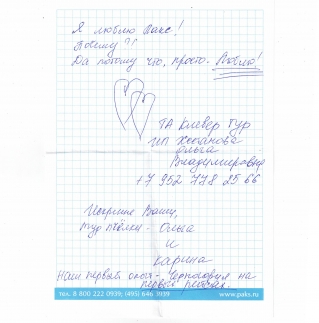 Я люблю Пакс!
Почему ?!
Да потому что, просто - Люблю!
ТА Клевер Тур
ИП
Ольга
Владимировна
+7 952 778 25 66
Искренне Ваши,
Тур пчёлки - Ольга
и
Карина
Наш первый опыт - Черногория на
первой
тел. 8 800 222 0939; (495) 646 1939
www.paks.ru